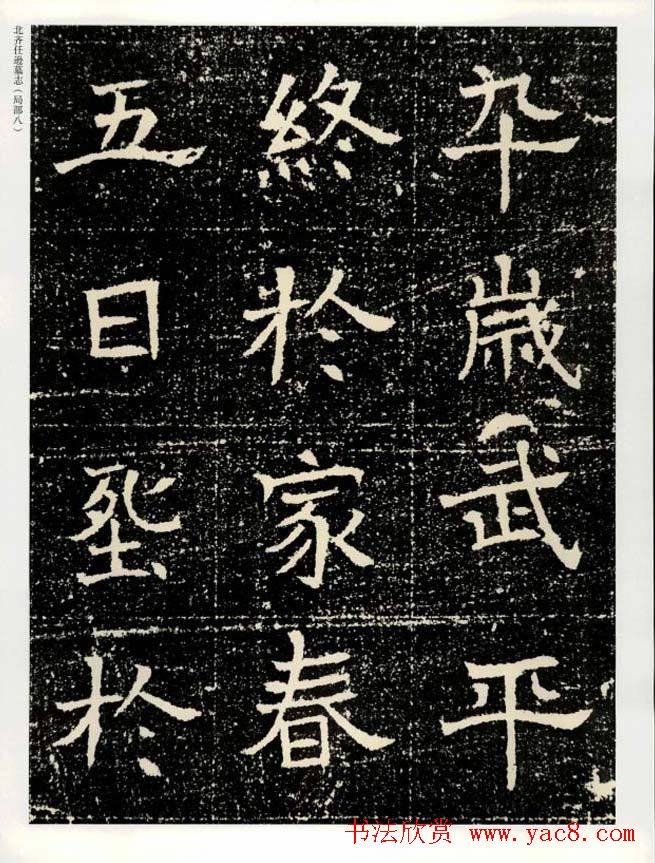 北齐任逊墓志（局部八）
卆歲武平
終於家春
五日於
书法欣赏 www.yac8.com